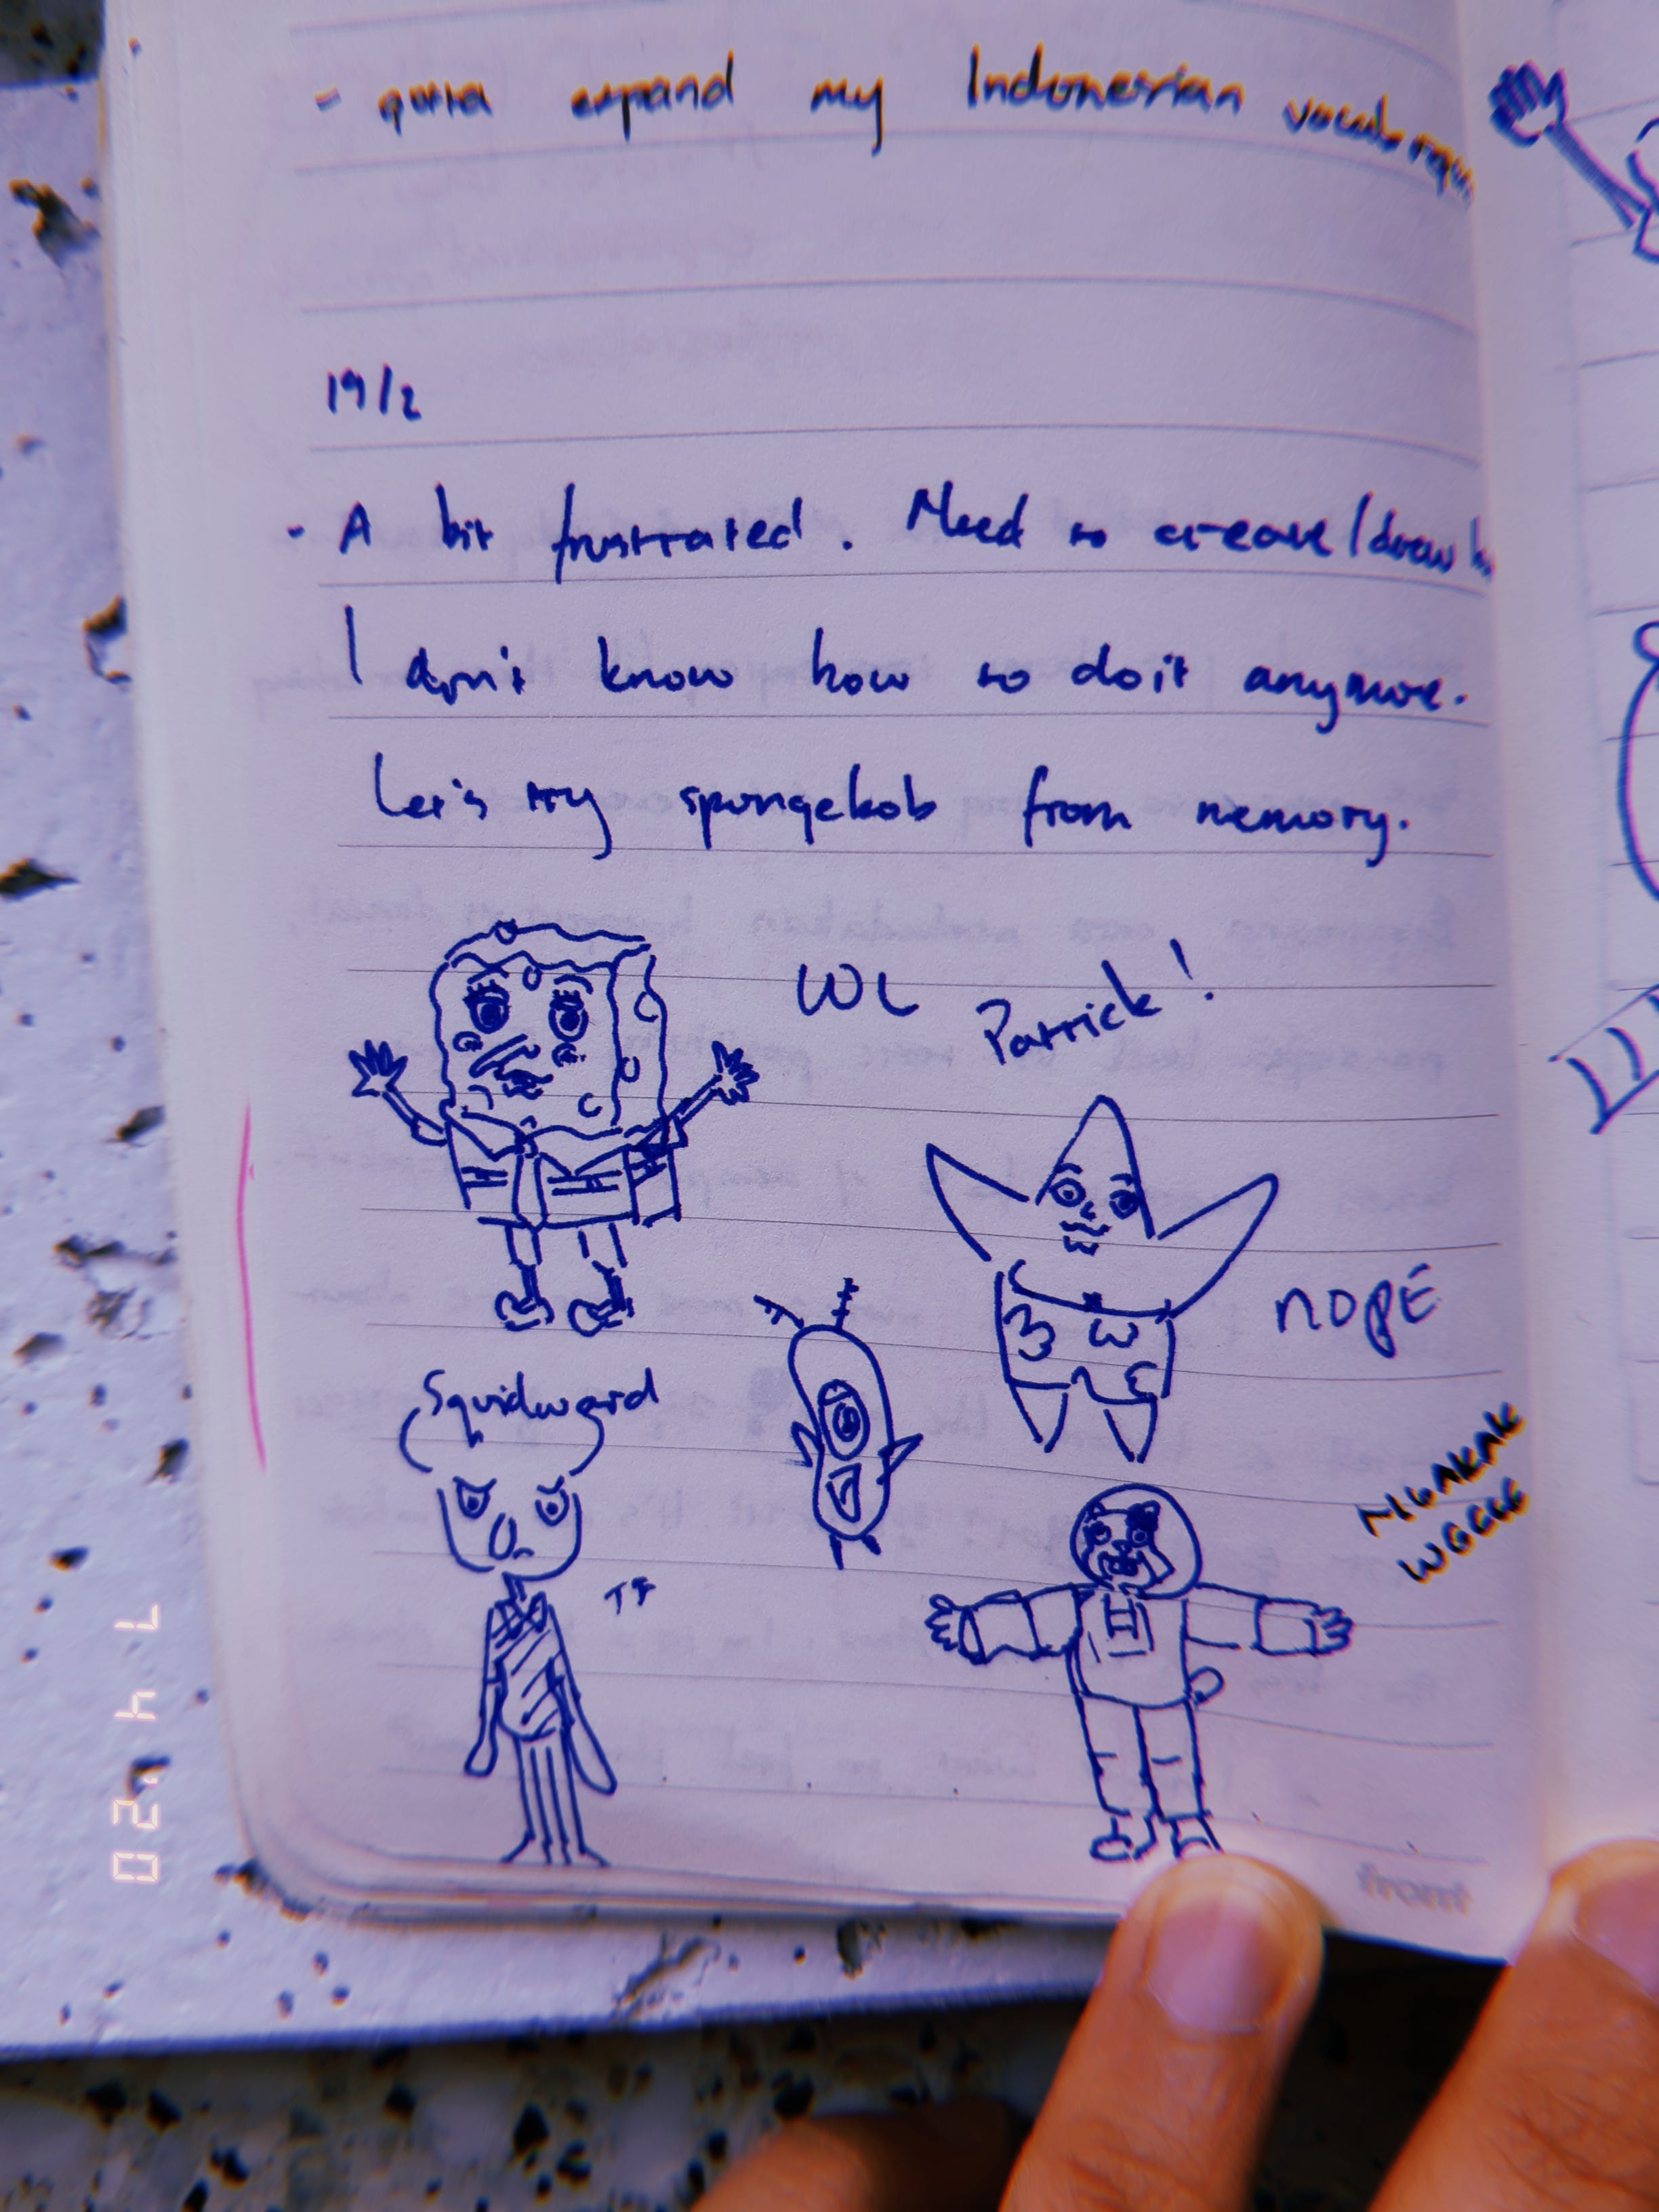 - gotta expand my Indonesian
19/2
- A bit frustrated. Need to create/draw
I don't know how to do it anymore.
Let's try spongebob from memory.
Patrick!
NOPE
Squidward
TF
front
7 4 '20